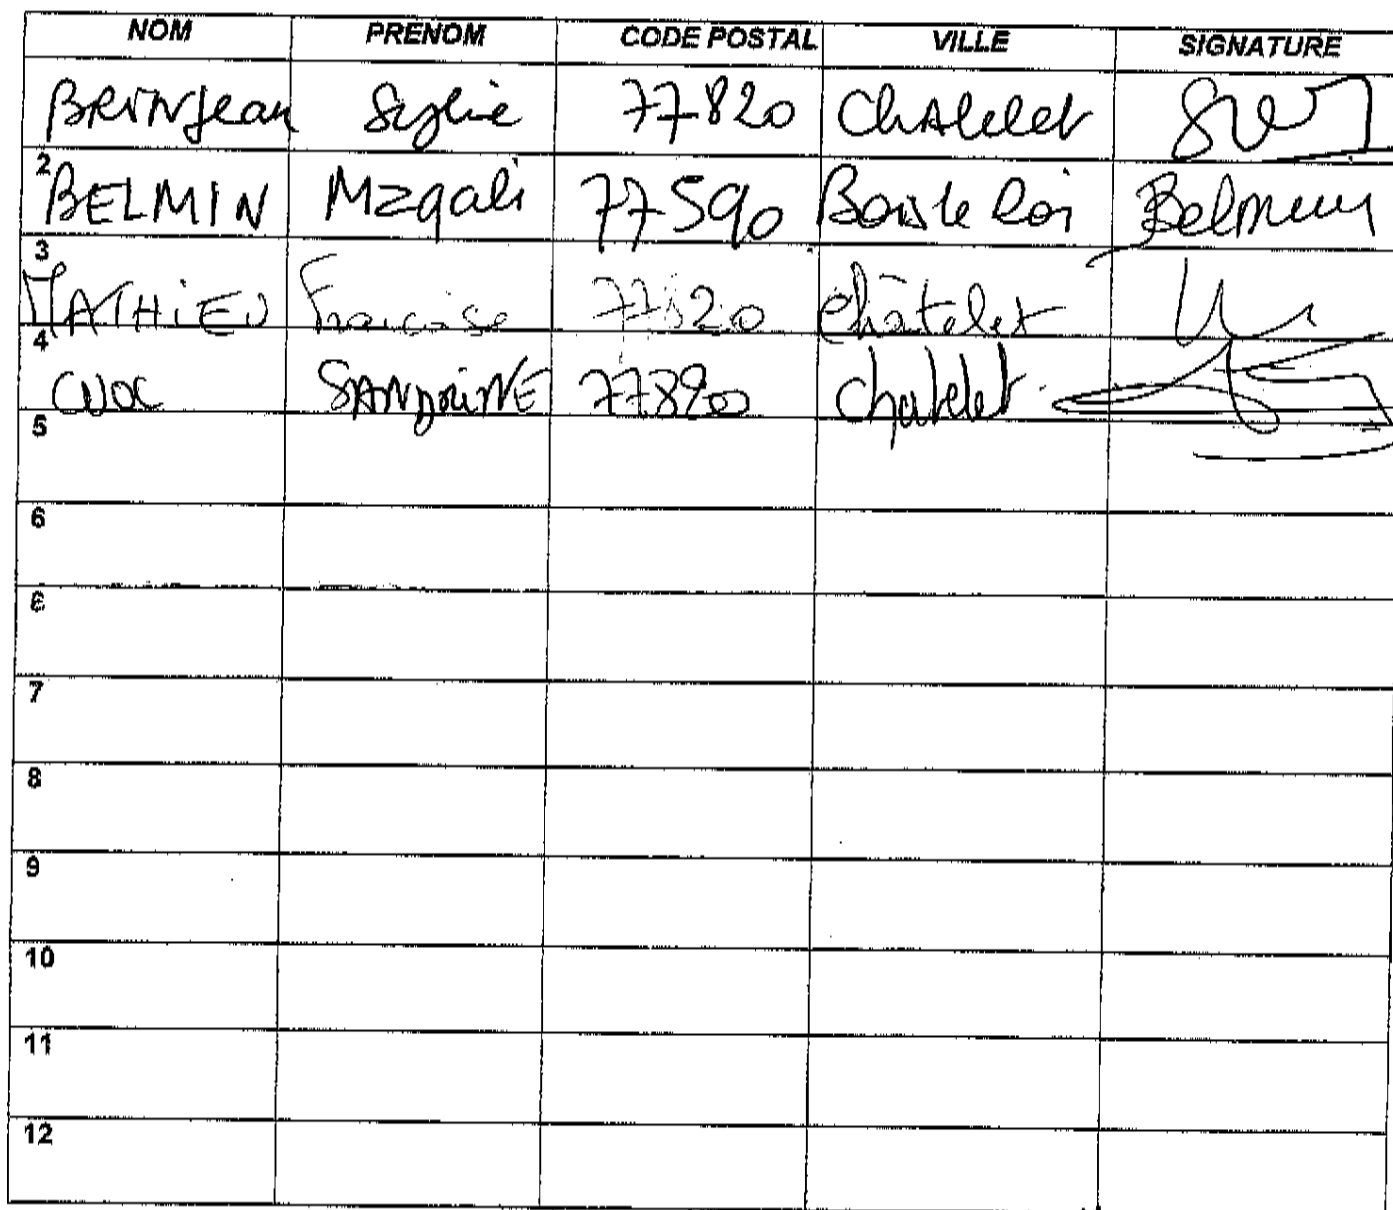 NOM PRENOM CODE POSTAL VILLE SIGNATURE
BRINJean Sylvie 77820 ChAtelet
2 BELMIN Magali 77590 Bois le Roi Belmin
3 MATHiEU Françoise 77820 Châtelet
4 CUOC SANDRiNE 77820 chatelet
5
6
6
7
8
9
10
11
12